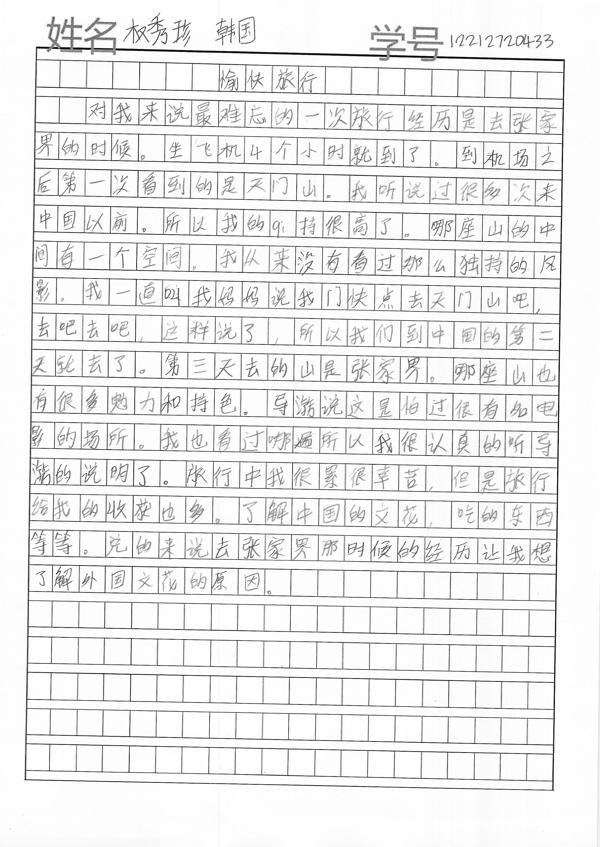 姓名 权秀珍 韩国 学号 12212720433
愉快旅行
对我来说最难忘的一次旅行经历是去张家
界的时候。坐飞机4个小时就到了。到机场之
后第一次看到的是天门山。我听说过很多次来
中国以前。所以我的qi持很高了。哪座山的中
间有一个空间。我从来没有看过那么独持的风
影。我一直叫我妈妈说我门快点去天门山吧,
去吧去吧,这样说了,所以我们到中国的第二
天就去了。第三天去的山是张家界。哪座山也
有很多勉力和持色。导游说这是怕过很有名电
影的场所。我也看过哪遍所以我很认真的听导
游的说明了。旅行中我很累很幸苦,但是旅行
给我的收获也多。了解中国的文花,吃的东西
等等。兑的来说去张家界那时候的经历让我想
了解外国文花的原因。